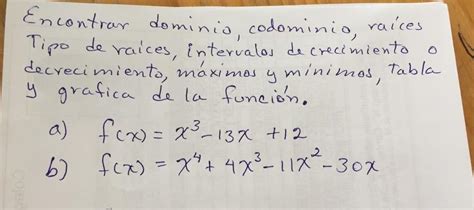 Encontrar dominio, codominio, raíces
Tipo de raíces, intervalos de crecimiento o
decrecimiento, máximos y mínimos, tabla
y grafica de la función.
a) f(x) = x³ - 13x + 12
b) f(x) = x⁴ + 4x³ - 11x² - 30x